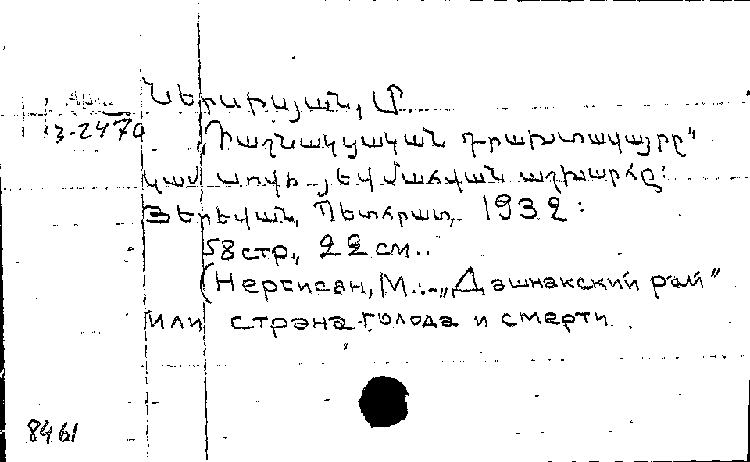 Арм.
3-2470
Ներսիսյան, Մ.
„Դաշնակցական դրախտավայրը"
կամ սովի յեվ մահվան աշխարհը:
Յերեվան, Պետհրատ, 1932:
58 стр., 22 см..
(Нерсисян, М.. „Дашнакский рай"
или страна голода и смерти
8461